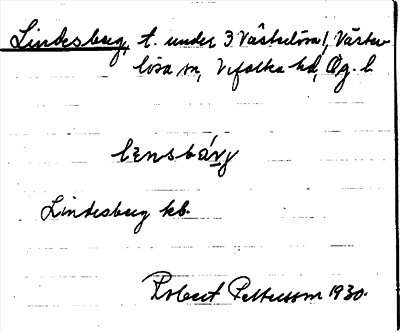 Lindesberg, t. under 3 Västerlösa 1, Väster-
lösa sn, Vifolka hd, Ög. l.
Lindesberg kb.
Robert Pettersson 1930.